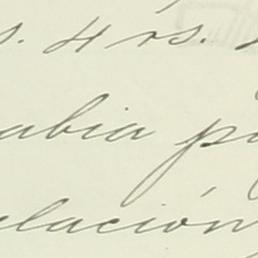 s. 4 rs.
abia p
ulación